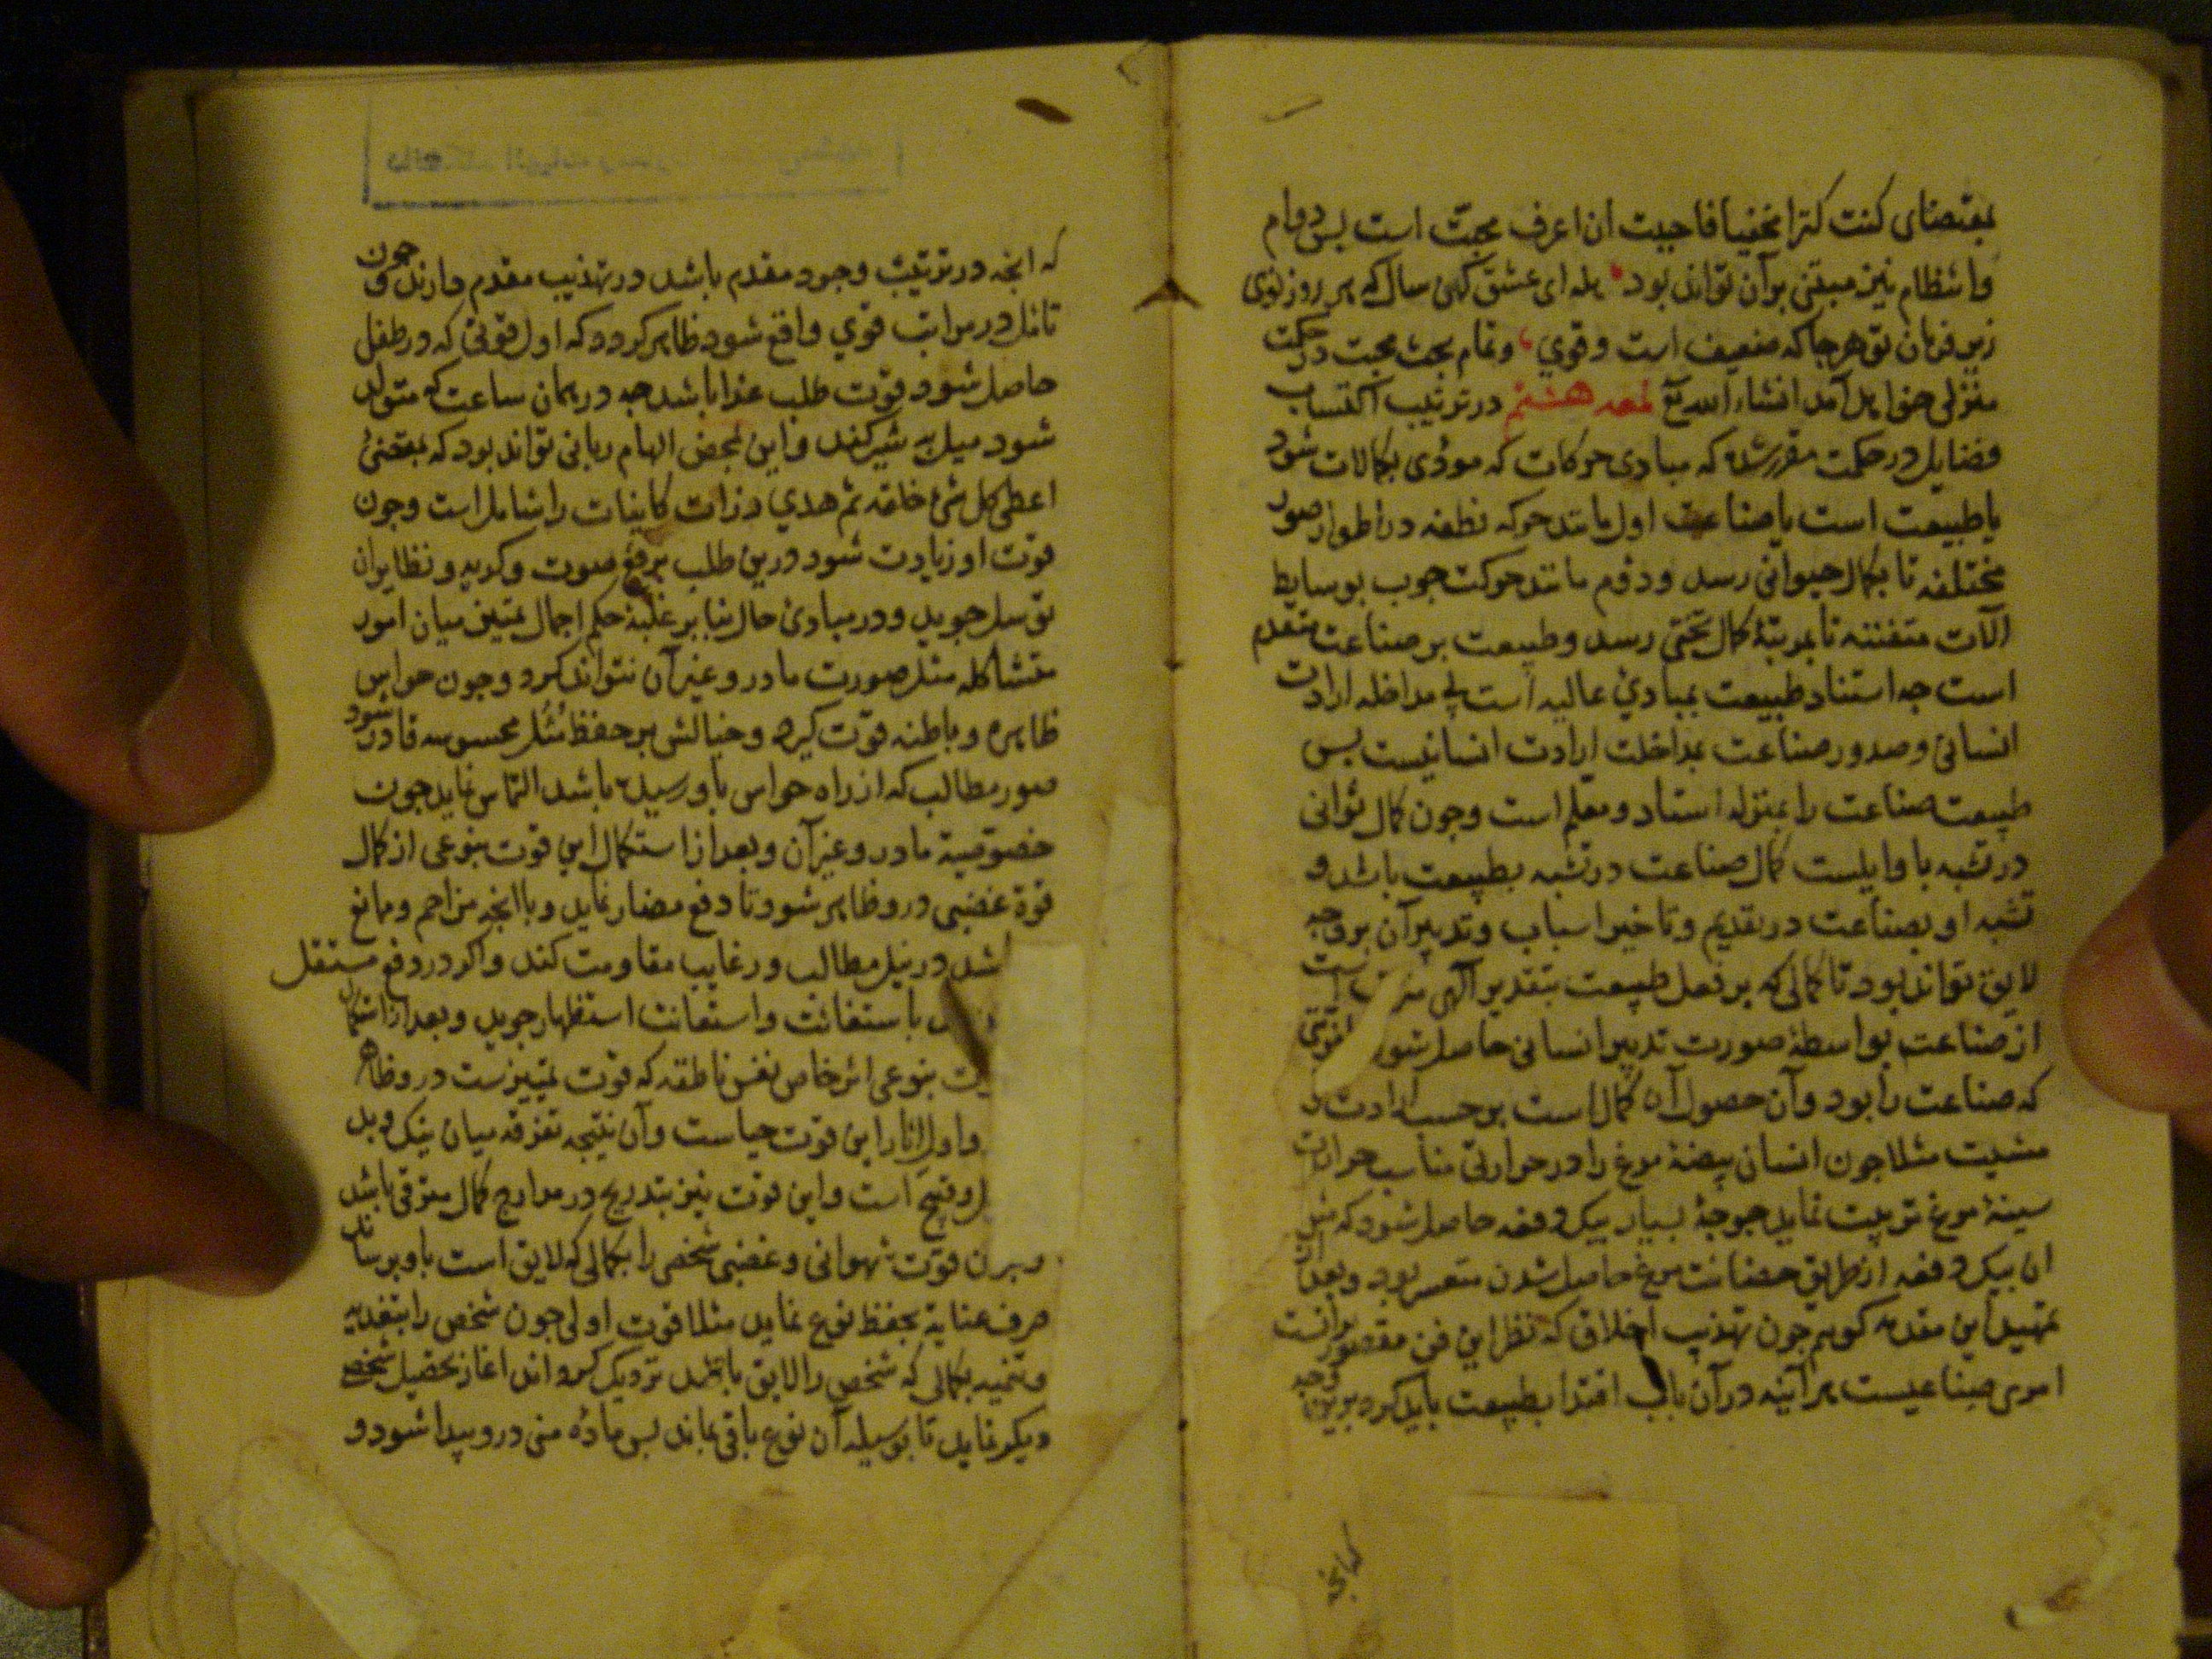 بمقتضای کنت کنزا مخفیا فاحببت ان اعرف محبت است بس دوام
وانتظام نیز مبتنی برآن تواند بود یله ای عشق کهن سال که هر روز نوی
زیر فرمان تو هرجا که ضعیف است و قوی و تمام بحث محبت در حکمت
منزلی خواهد آمد انشاء الله تع لمعه هشتم در ترتیب اکتساب
فضایل در حکمت مقرر شده که مبادی حرکات که مودی بکمالات شود
یا طبیعت است یا صناعت اول مانند حرکه نطفه در اطوار صور
مختلفه تا بکمال حیوانی رسد و دوم مانند حرکت جوب بوسایط
آلات متفننه تا بمرتبۀ کمال تختی رسد و طبیعت بر صناعت متقدم
است جه استناد طبیعت بمبادئ عالیه است بی مداخله ارادت
انسانی و صدور صناعت بمداخلت ارادت انسانیست بس
طبیعت صناعت را بمنزله استاد و معلم است و جون کمال ثوانی
در تشبه با وایلست کمال صناعت در تشبه بطبیعت باشد و
تشبه او بصناعت در تقدیم و تاخیر اسباب و تدبیر آن بر وجه
لایق تواند بود تا کمالی که بر فعل طبیعت بتقدیر آلهی است
از صناعت بواسطۀ صورت تدبیر انسانی حاصل شود
که صناعت را بود و آن حصول آن کمال است بر حسب ارادت
مشیت مثلا جون انسانی بیضۀ مرغ را در حرارتی مناسب حرارت
سینۀ مرغ تربیت نماید جوجۀ بسیار بیک دفعه حاصل شود که مثل
ان بیک دفعه از طریق حضانت مرغ حاصل شدن متعسر بود و بعد از
تمهید این مقدمه کوییم جون تهذیب اخلاق که نظر این فن مقصور برانست
امری صناعیست هر آینه در آن باب اقتدا بطبیعت باید کرد وجه
که انجه
که انجه در ترتیب وجود مقدم باشد در تهذیب مقدم دارند و جون
تامل در مراتب قوی واقع شود ظاهر کردد که اول قوتی که در طفل
حاصل شود قوت طلب غذا باشد جه در همان ساعت که متولد
شود میل به شیر کند و این بمحض الهام ربانی تواند بود که بمقتضی
اعطی کل شئ خلقه ثم هدی ذرات کاینات را شاملست و جون
قوت او زیادت شود درین طلب برفع صوت و کریه و نظایر ان
توسل جوید و در مبادئ حال بنابر غلبۀ حکم اجمال تمییز میان امور
متشاکله مثل صورت مادر و غیر آن نتواند کرد و جون حواس
ظاهره و باطنه قوت کیرد و خیالش بر حفظ مثل محسوسه قادر شود
صور مطالب که از راه حواس باو رسیده باشد التماس نماید جون
خصوصیة مادر و غیر آن و بعد از استکمال این قوت بنوعی از کمال
قوة غضبی درو ظاهر شود تا دفع مضار نماید و با انجه مزاحم و مانع
شد در نیل مطالب و رغایب مقاومت کند و اکر در دفع مستقل
باستغاثت و استعانت استظهار جوید و بعد از استکمال
بنوعی اثر خاص نفس ناطقه که قوت تمییزست درو ظاهر
و اول اثار این قوت حیاست و آن نتیجه تفرقه میان نیک و بد
و قبیح است و این قوت نیز بتدریج در مدارج کمال مترقی باشد
قوت شهوانی و غضبی شخص را بکمالی که لایق است باو برساند
صرف عنایة بحفظ نوع نماید مثلا قوت اولی جون شخص را بتغدیه
و تنمیه بکمالی که شخص را لایق باشد نزدیک کرداند اغاز تحصیل شخص
دیکر نماید تا بوسیلۀ آن نوع باقی بماند بس مادۀ منی درو پیدا شود و